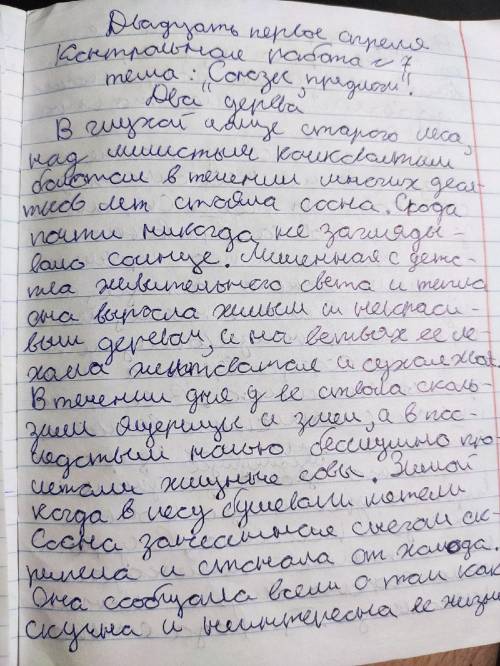 Двадцать первое апреля
Контрольная работа №7
тема: "Союзы, предлоги".
Два дерева
В глухой чаще старого леса,
над мшистым кочковатым
болотом в течении многих деся-
тков лет стояла сосна. Сюда
почти никогда не загляды-
вало солнце. Лишенная с детс-
тва живительного света и тепла
она выросла хилым и некраси-
вым деревом, и на ветвях ее ле-
жала желтоватая и сухая хвоя.
В течении дня у ее ствола сколь-
зили ящерицы и змеи, а в пос-
ледствии ночью бесшумно про
летали хищные совы. Зимой
когда в лесу бушевали метели
Сосна занесенная снегом ск-
рипела и стонала от холода.
Она сообщала всем о том как
скучна и неинтересна ее жизнь